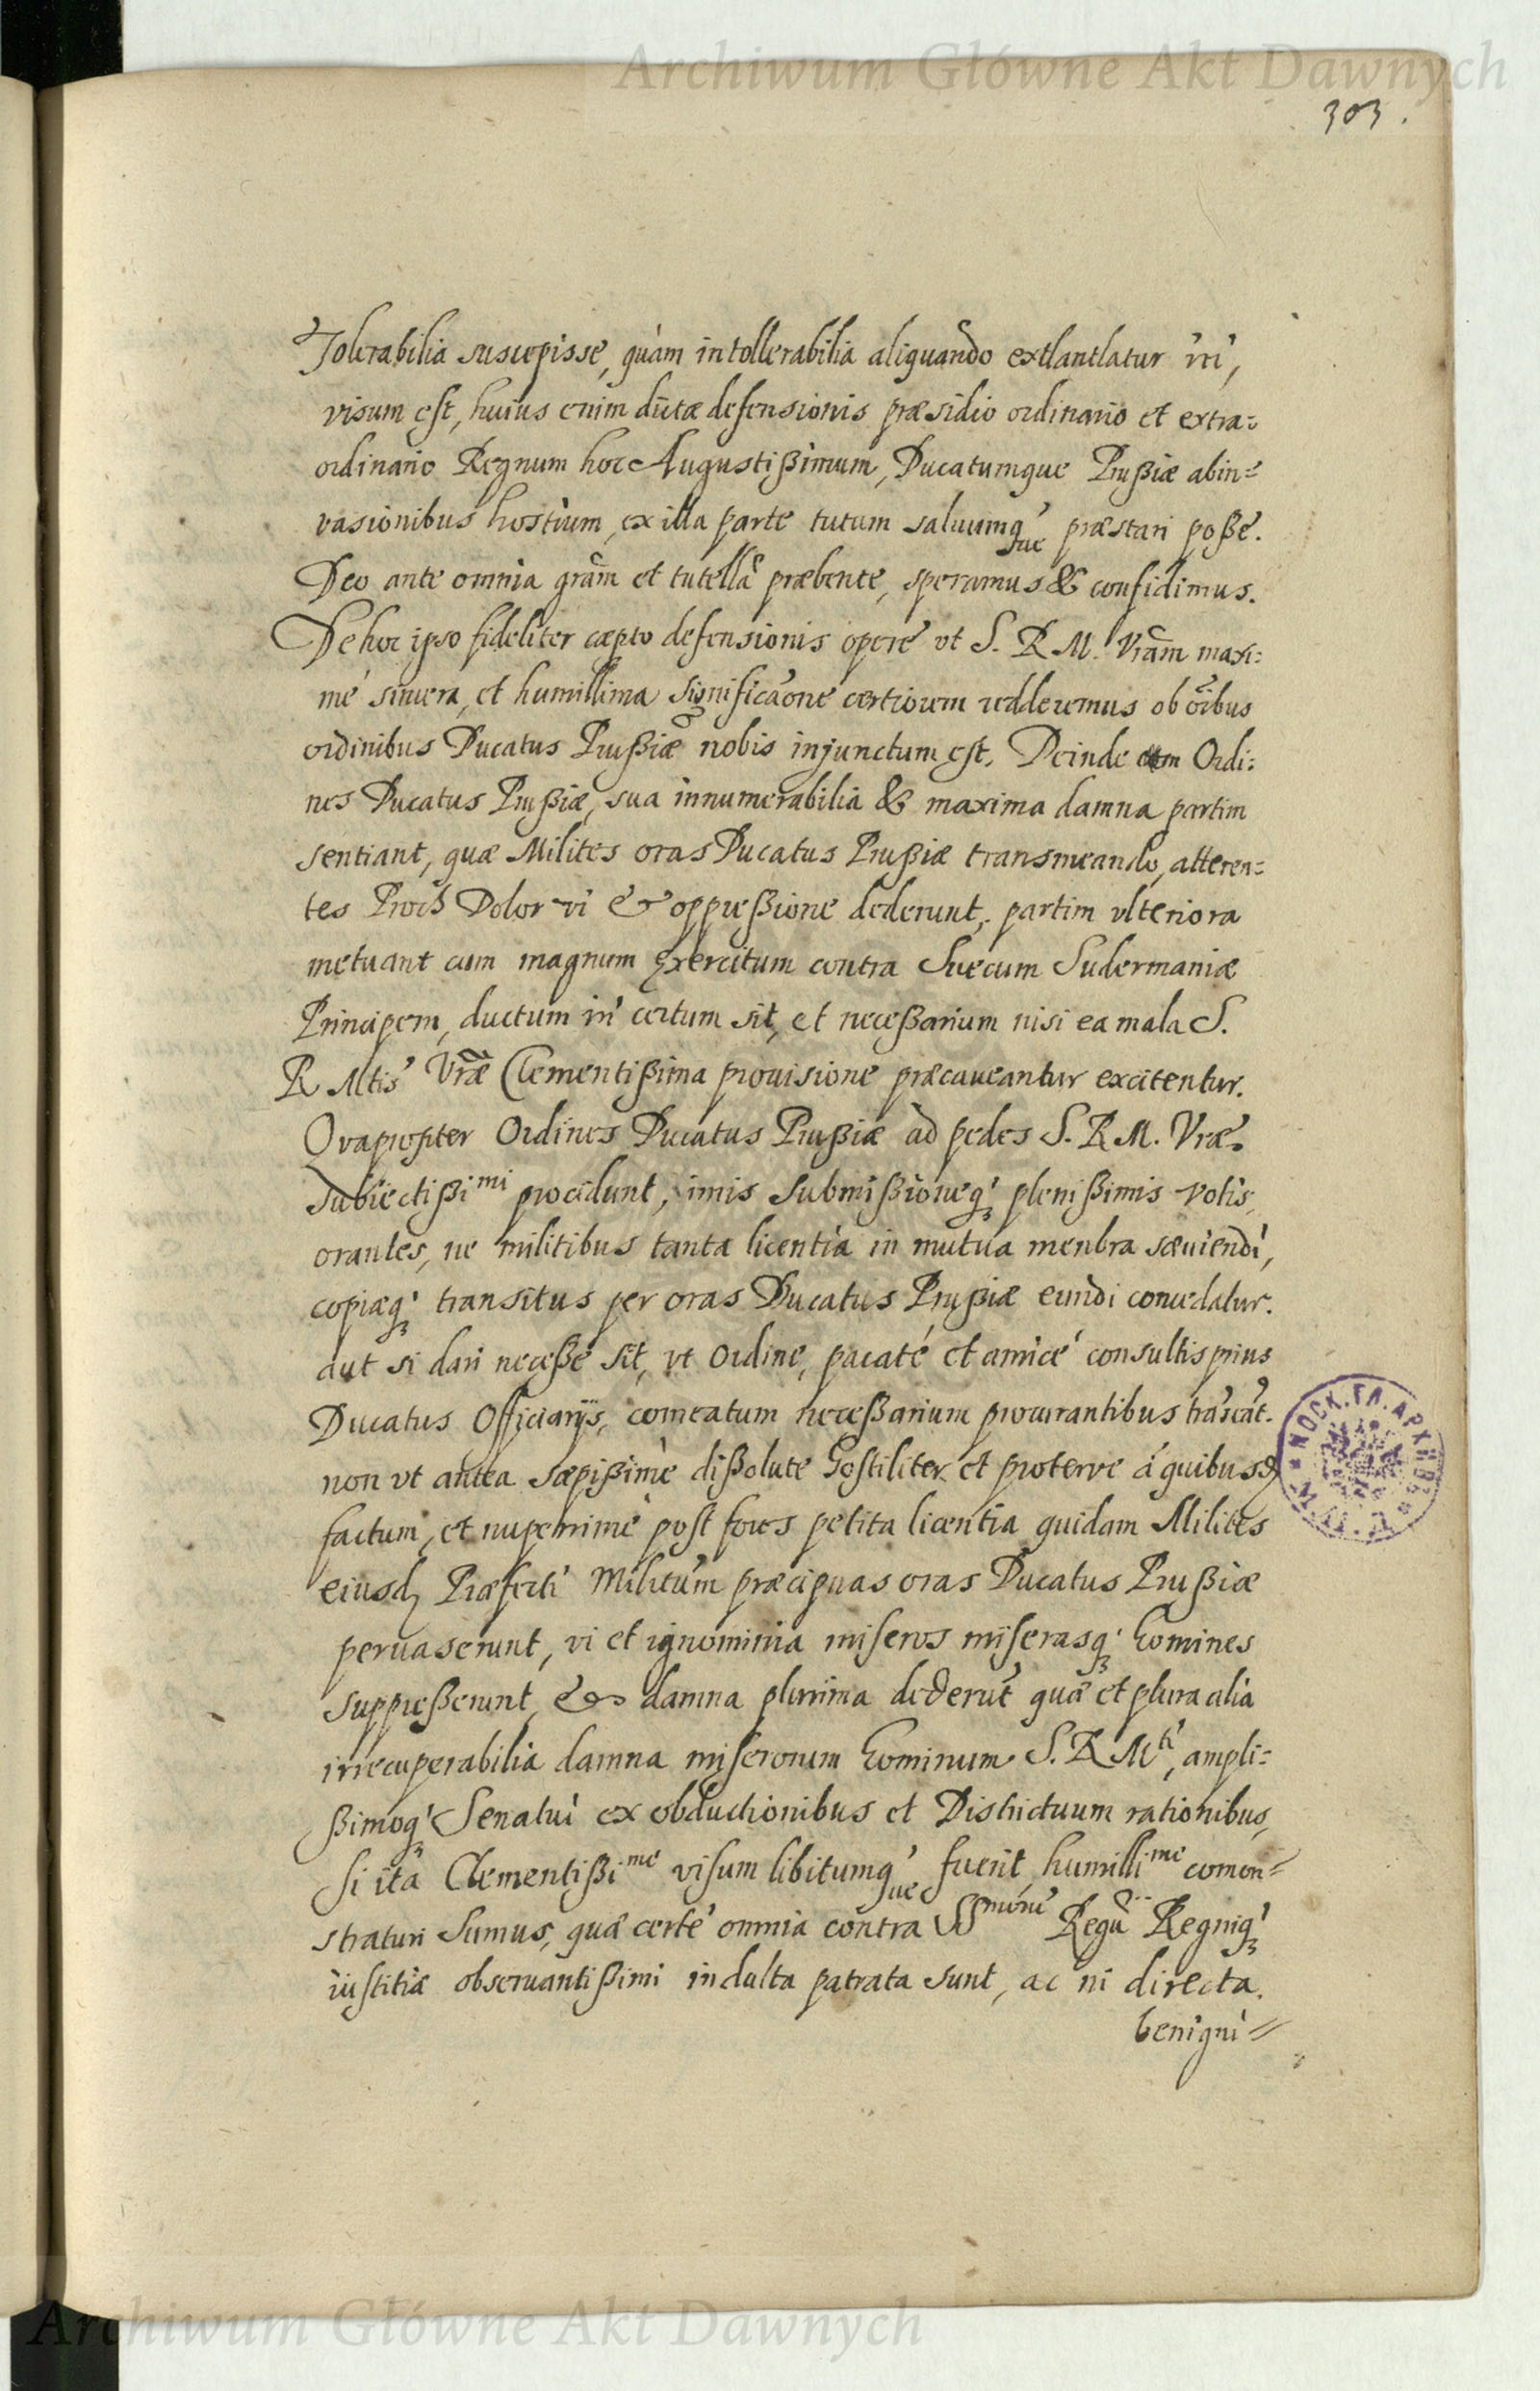 Archiwum Główne Akt Dawnych
303.
Tolerabilia suscepisse, quàm intollerabilia aliquando extlantlatur iri,
visum est, huius enim dictæ defensionis præsidio ordinario et extra=
ordinario Regnum hoc Augustißimum, Ducatumque Prußiæ ab in=
vasionibus hostium, ex illa parte tutum saluumq́ue præstari poße.
Deo ante omnia grãm et tutellã præbente, speramus & confidimus.
De hoc ipso fideliter cæpto defensionis opere vt S. R M. Vrãm maxi=
mé sincera, et humillima significãone certiorem redderemus ob õibus
ordinibus Ducatus Prußiæ nobis injunctum est. Deinde cum Ordi=
nes Ducatus Prußiæ, sua innumerabilia & maxima damna partim
sentiant, quæ Milites oras Ducatus Prußiæ transmeando, atteren=
tes Proh Dolor vi & oppreßione dederunt, partim vlteriora
metuant cum magnum Exercitum contra Suecum Sudermaniæ
Principem, ductum iri certum sit, et neceßarium nisi ea mala S.
R Mtis Vræ Clementißima prouisione præcaueantur excitentur.
Quapropter Ordines Ducatus Prußiæ ad pedes S. R M. Vræ
subiectißimi procidunt, imis submißioneq́ plenißimis votis,
orantes, ne militibus tanta licentia in mutua menbra sæuiendi,
copiæq́ transitus per oras Ducatus Prußiæ eundi concedatur.
aut si dari neceße sit, vt Ordine, pacaté et amicé consultis prius
Ducatus Officiarijs, comeatum neceßarium procurantibus trãseãt.
non vt antea sæpißimè dißolute hostiliter et proterve á quibusd
factum, et nuperrimè post fores petita licentia quidam Milites
eiusd Præfecti Militum præcipuas oras Ducatus Prußiæ
peruaserunt, vi et ignominia miseros miserasq́ homines
suppreßerunt, & damna plurima dederũt quæ et plura alia
irrecuperabilia damna miserorum hominum S. R Mti, ampli=
ßimoq́ Senatui ex obductionibus et Districtuum rationibus,
si ita Clementißime visum libitumq́ue fuerit, humillime comon=
straturi sumus, quæ certé omnia contra Regũ Regniq́
iustitiæ obseruantißimi indulta patrata sunt, ac ni directa.
benigni=
МОСК.ГЛ.АРХИВЪ
Archiwum Główne Akt Dawnych